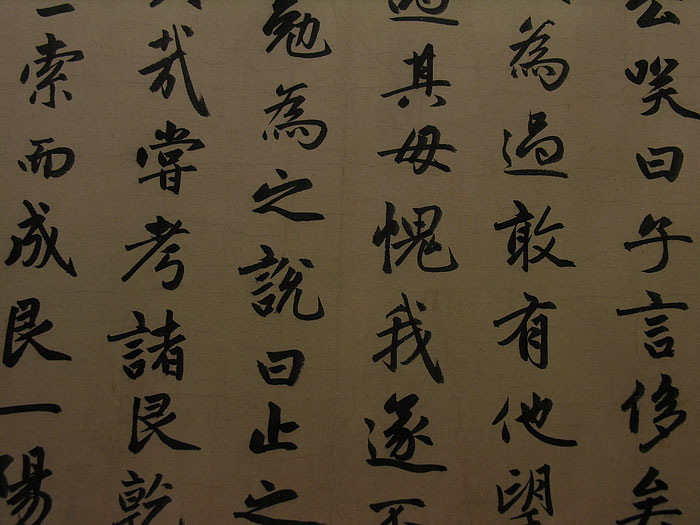 公笑曰子言侈矣
為過敢有他望
過其毋愧我遂不
勉為之說曰止之
哉嘗考諸艮乾
一索而成艮一陽